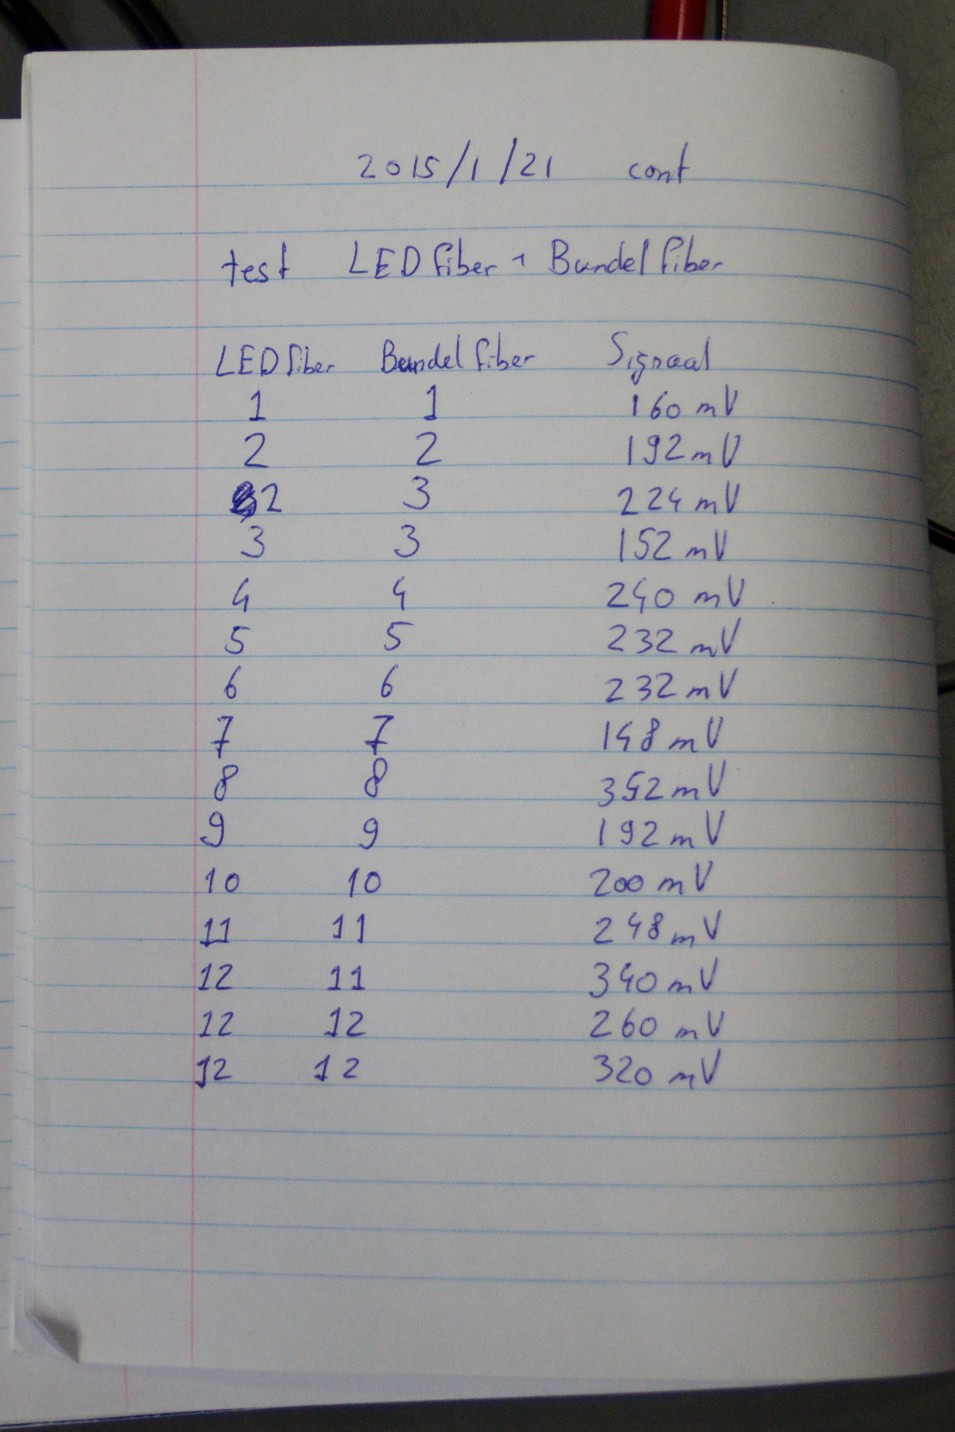 2015/1/21 cont
test LED fiber + Bundel fiber
LED fiber Bundel fiber Signaal
1 1 160 mV
2 2 192 mV
2 3 224 mV
3 3 152 mV
4 4 240 mV
5 5 232 mV
6 6 232 mV
7 7 148 mV
8 8 352 mV
9 9 192 mV
10 10 200 mV
11 11 248 mV
12 11 340 mV
12 12 260 mV
12 12 320 mV